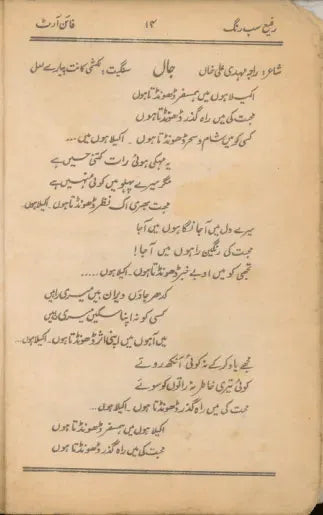 رفیع سب رنگ ۱۴ فائن آرٹ
شاعر: راجہ مہدی علی خاں جال سنگیت: لکشمی کانت پیارے لال
اکیلا ہوں میں ہمسفر ڈھونڈتا ہوں
محبت کی میں راہ گذر ڈھونڈتا ہوں
کسی کو میں شام و سحر ڈھونڈتا ہوں ۔ اکیلا ہوں میں...
یہ مہکی ہوئی رات کتنی حسیں ہے
مگر میرے پہلو میں کوئی نہیں ہے
محبت بھری اک نظر ڈھونڈتا ہوں ۔ اکیلا ہوں...
میرے دل میں آجا نگاہوں میں آجا
محبت کی رنگین راہوں میں آجا!
تجھی کو میں او بے خبر ڈھونڈتا ہوں ۔ اکیلا ہوں.....
کدھر جاؤں ویران ہیں میری راہیں
کسی کو نہ اپنا سکیں میری آہیں
میں آہوں میں اپنی اثر ڈھونڈتا ہوں ۔ اکیلا ہوں...
مجھے یاد کر کے نہ کوئی آنکھ روئے
کوئی تیری خاطر نہ راتوں کو سوئے
محبت کی میں راہ گذر ڈھونڈتا ہوں ۔ اکیلا ہوں...
اکیلا ہوں میں ہمسفر ڈھونڈتا ہوں
محبت کی میں راہ گذر ڈھونڈتا ہوں